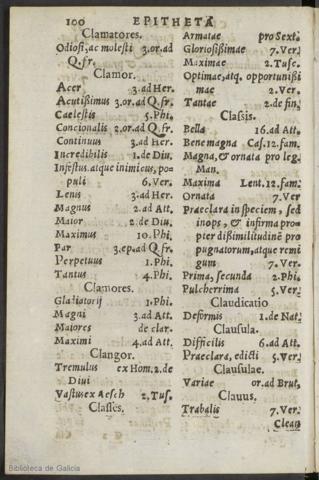 100 EPITHETA
Clamatores.
Odiosi, ac molesti 3. or. ad
Q. fr.
Clamor.
Acer 3. ad Her.
Acutißimus 3. or. ad Q. fr.
Caelestis 5. Phi.
Concionalis 2. or. ad Q. fr.
Continuus 3. ad Her.
Incredibilis 1. de Diu.
Infestus atque inimicus, po-
puli 6. Ver.
Lenis 3. ad Her.
Magnus 2. ad Att.
Maior 2. de Diu.
Maximus 10. Phi.
Par 3. ep. ad Q. fr.
Perpetuus 1. Phi.
Tantus 4. Phi.
Clamores.
Gladiatorij 1. Phi.
Magni 3. ad Att.
Maiores de clar.
Maximi 4. ad Att.
Clangor.
Tremulus ex Hom. 2. de
Diui
Vastus ex Aesch 2. Tus.
Classes.
Armatae pro Sext.
Gloriosißimae 7. Ver.
Maximae 2. Tusc.
Optimae, atq. opportunißi
mae 2. Ver.
Tantae 2. de fin.
Classis.
Bella 16. ad Att.
Bene magna Cas. 12. fam.
Magna, & ornata pro leg.
Man.
Maxima Lent. 12. fam.
Ornata 7. Ver
Praeclara in speciem, sed
inops, & infirma pro-
pter dißimilitudinē pro
pugnatorum, atque remi
gum 7. Ver.
Prima, secunda 2. Phi.
Pulcherrima 5. Ver.
Claudicatio
Deformis 1. de Nat.
Clausula.
Difficilis 6. ad Att.
Praeclara, edicti 5. Ver.
Clausulae.
Variae or. ad Brut.
Clauus.
Trabalis 7. Ver.
Clean
Biblioteca de Galicia